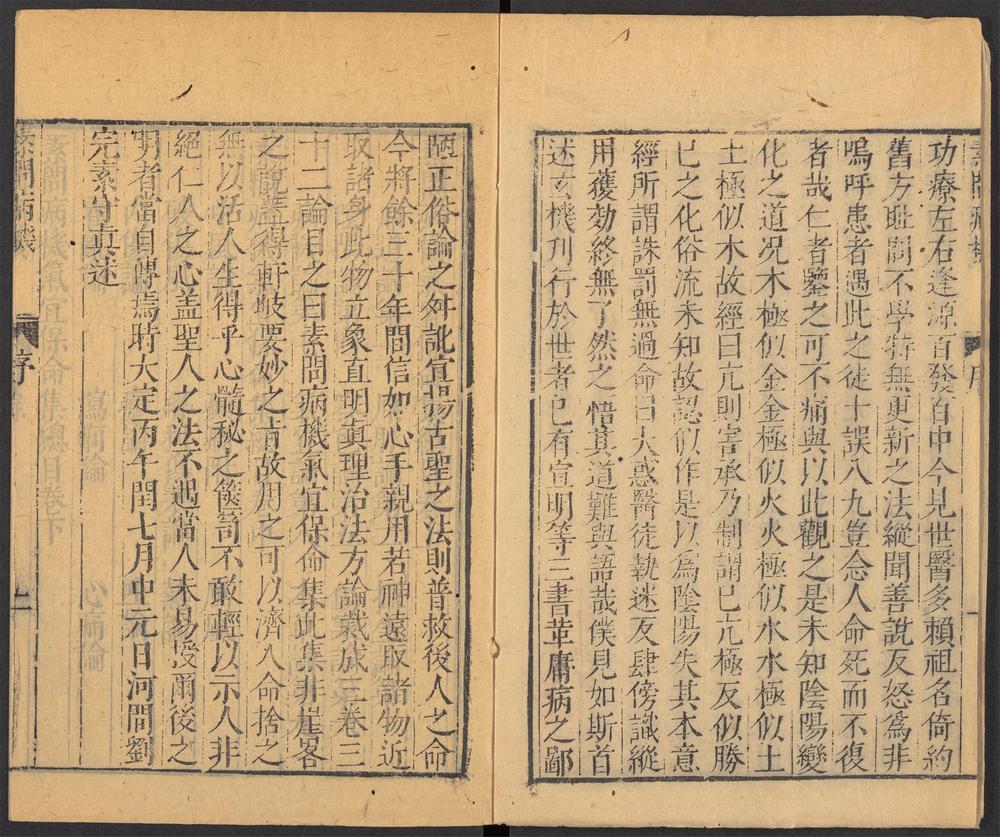 功療左右逢源百發百中今見世醫多賴祖名倚約
舊方恥問不學特無更新之法縱聞善說反怒爲非
嗚呼患者遇此之徒十誤八九豈念人命死而不復
者哉仁者鑒之可不痛與以此觀之是未知陰陽變
化之道况木極似金金極似火火極似水水極似土
土極似木故經曰亢則害承乃制謂己亢極反似勝
己之化俗流未知故認似作是以爲陰陽失其本意
經所謂誅罰無過命曰大惑醫徒執迷反肆傍識縱
用獲効終無了然之悟其道難與語哉僕見如斯首
述玄機刊行於世者已有宣明等三書革庸病之鄙
陋正俗論之舛訛宜揚古聖之法則普救後人之命
今將餘三十年間信如心手親用若神遠取諸物近
取諸身此物立象直明眞理治法方論裁成三卷三
十二論目之曰素問病機氣宜保命集此集非崖客
之說蓋得軒岐要妙之旨故用之可以濟人命捨之
無以活人生得乎心髓秘之篋笥不敢輕以示人非
絕仁人之心盖聖人之法不遇當人未易授爾後之
明者當自傳焉時大定丙午閏七月中元日河間劉
完素守真述
素問病機
序